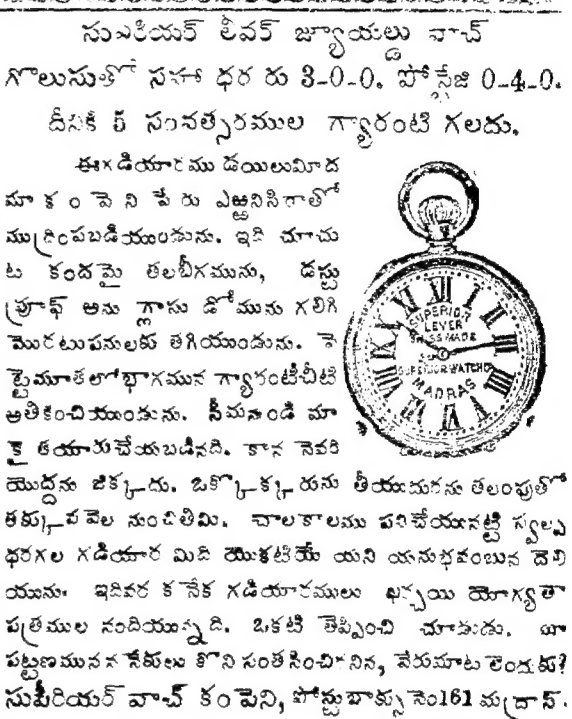 సుపీరియర్ లీవర్ జ్యూయల్డు వాచ్
గొలుసుతో సహా ధర రు 3-0-0. పోస్టేజి 0-4-0.
దీనికి 5 సంవత్సరముల గ్యారంటి గలదు.
ఈగడియారము డయిలుమీద
మా కంపెని పేరు ఎఱ్ఱనిసిరాతో
ముద్రింపబడియుండును. ఇది చూచు
ట కందమై తలబీగమును, డస్టు
ప్రూఫ్ అను గ్లాసు డోమును గలిగి
మొరటుపనులకు తగియుండును. పె
ట్టెమూతలోభాగమున గ్యారంటీచీటి
అతికించియుండును. సీమనుండి మా
కై తయారుచేయబడినది. కాన నెవరి
యొద్దను జిక్కదు. ఒక్కొక్కరును తీయుదురను తలంపుతో
తక్కువవెల నుంచితిమి. చాలకాలము పనిచేయునట్టి స్వల్ప
ధరగల గడియార మిది యొకటియే యని యనుభవంబున దెలి
యును. ఇదివర కనేక గడియారములు ఖర్చయి యోగ్యతా
పత్రముల నందియున్నది. ఒకటి తెప్పించి చూడుడు. ఈ
పట్టణమున ననేకులు కొని సంతసించిరనిన, వేరుమాట లెందుకు?
సుపీరియర్ వాచ్ కంపెని, పోస్టుబాక్సు నెం161 మద్రాస్.
SUPERIOR
LEVER
SWISS MADE
SUPERIOR WATCH CO
MADRAS